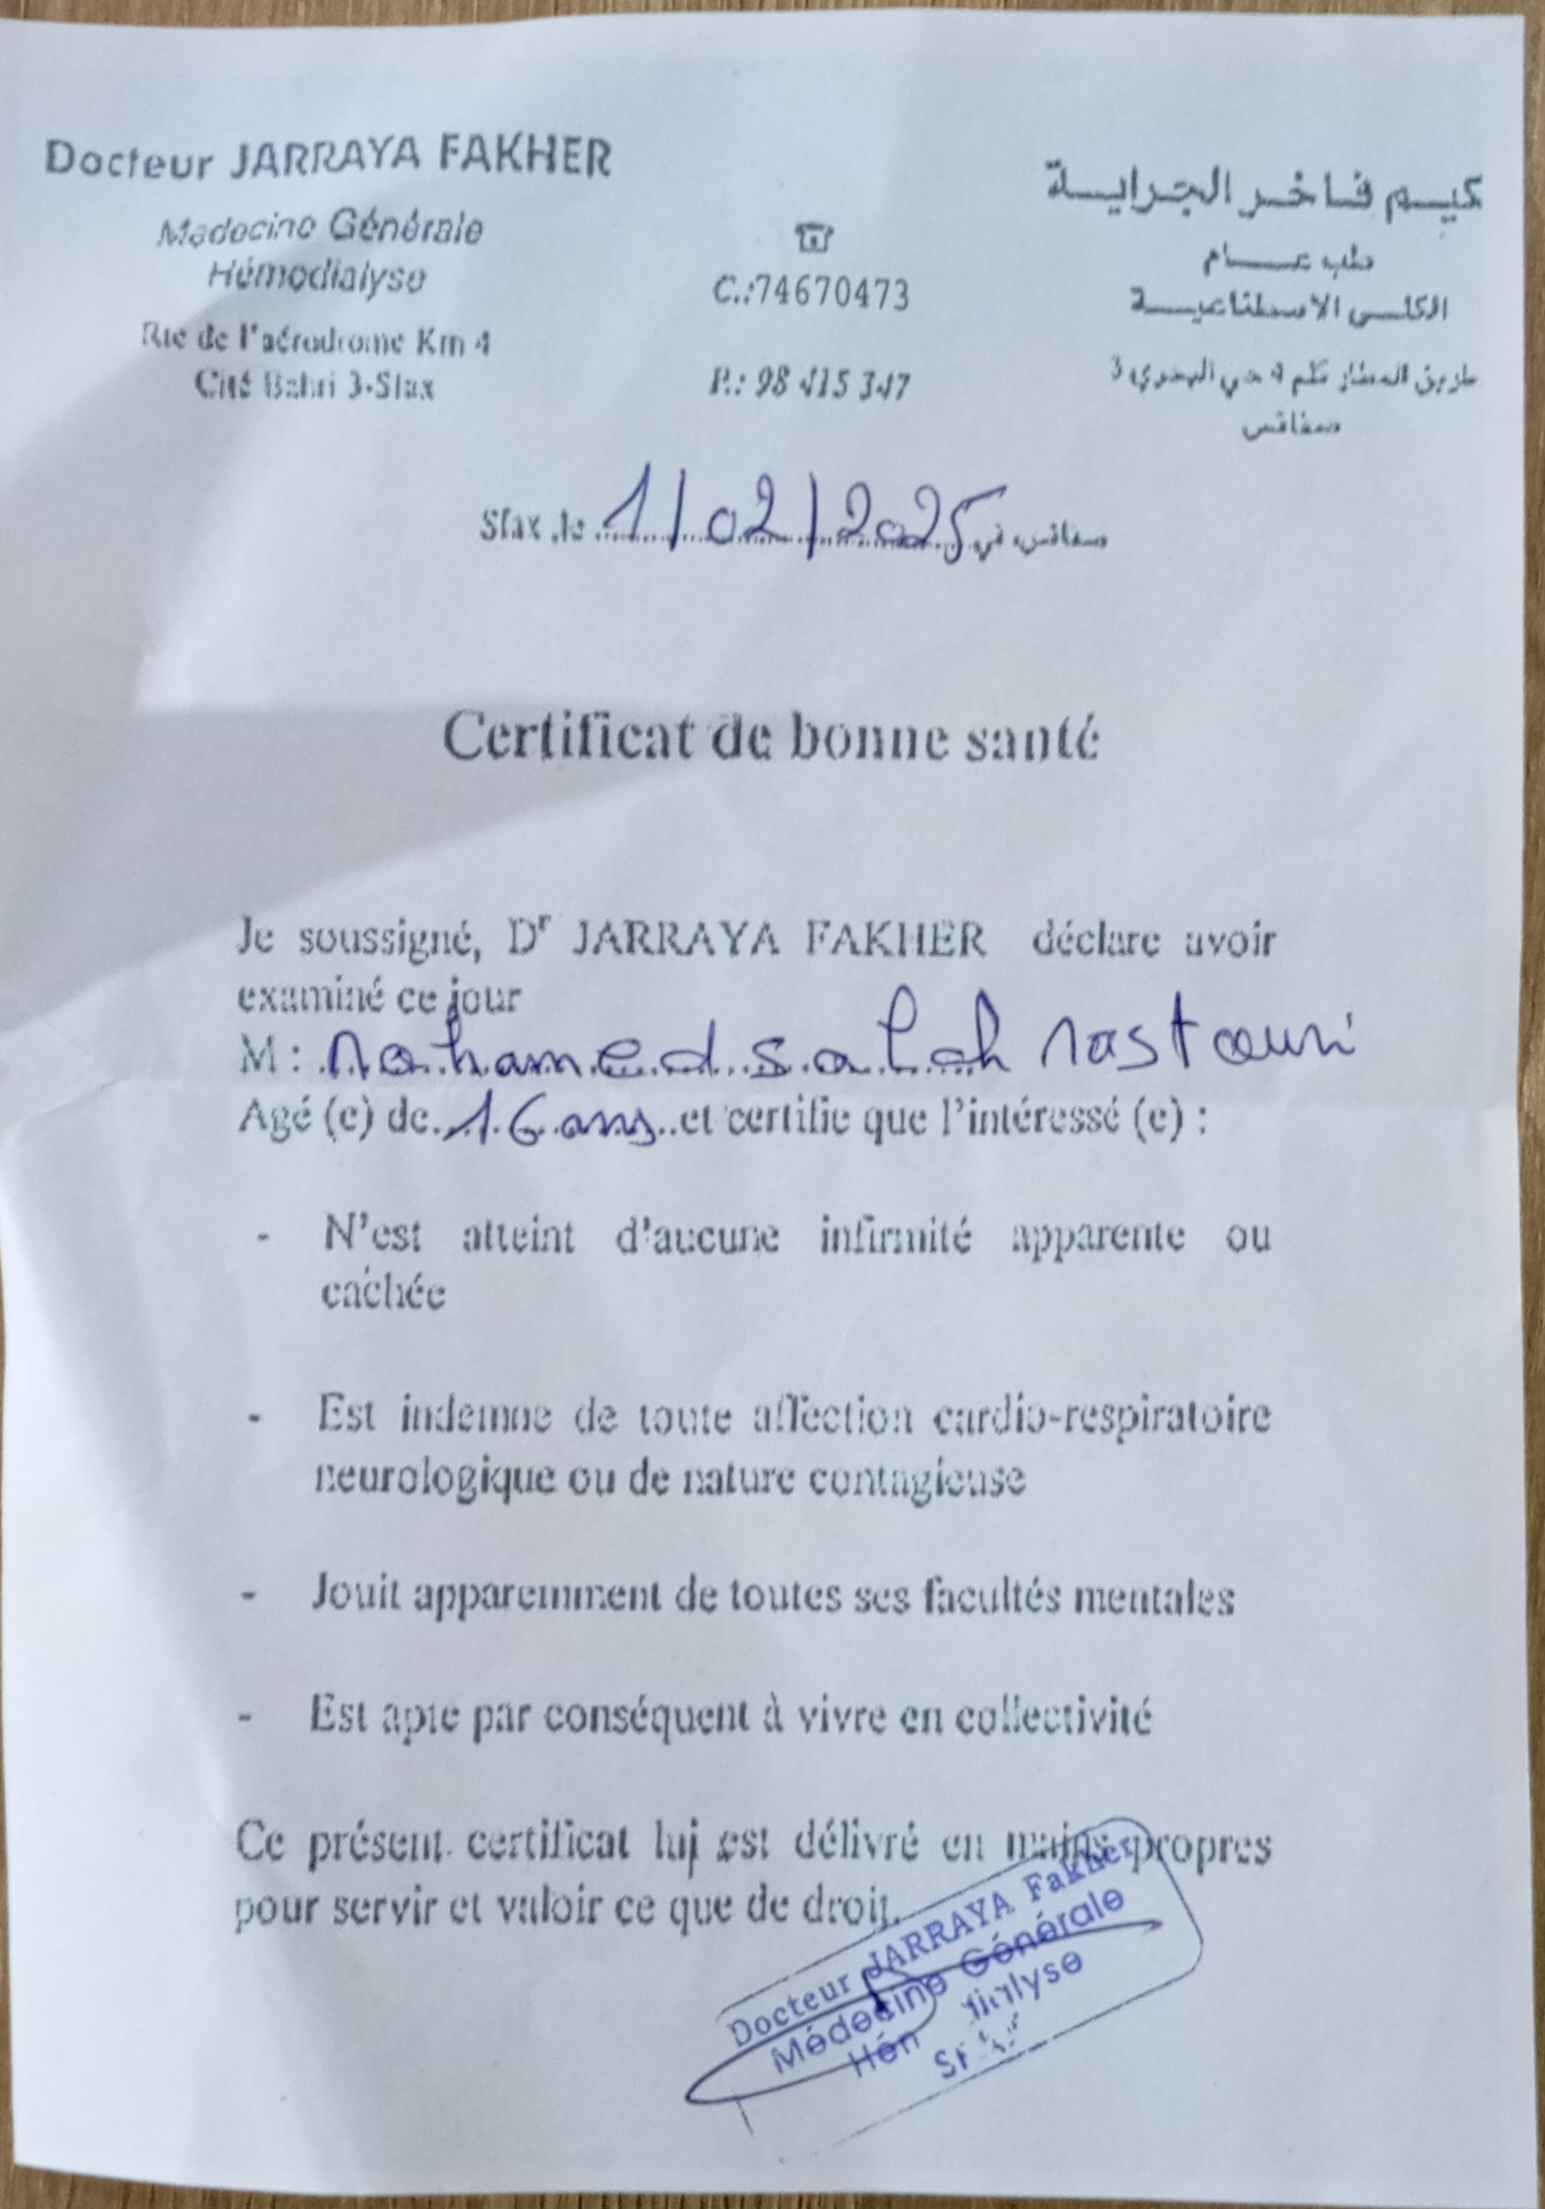 Docteur JARRAYA FAKHER
Médecine Générale
Hémodialyse
Rte de l'aérodrome Km 4
Cité Bahri 3-Sfax
C.:74670473
P.: 98 415 347
كيم فاخر الجراية
طب عام
الكلى الاصطناعية
طريق المطار كلم 4 حي البحري 3
صفاقس
Sfax ,le 1/02/2025 صفاقس، في
Certificat de bonne santé
Je soussigné, Dr JARRAYA FAKHER déclare avoir
examiné ce jour
M : Mohamed salah
Agé (e) de 16 ans et certifie que l'intéressé (e) :
- N'est atteint d'aucune infirmité apparente ou
cachée
- Est indemne de toute affection cardio-respiratoire
neurologique ou de nature contagieuse
- Jouit apparemment de toutes ses facultés mentales
- Est apte par conséquent à vivre en collectivité
Ce présent certificat lui est délivré en mains propres
pour servir et valoir ce que de droit.
Docteur JARRAYA Fakher
Médecine Générale